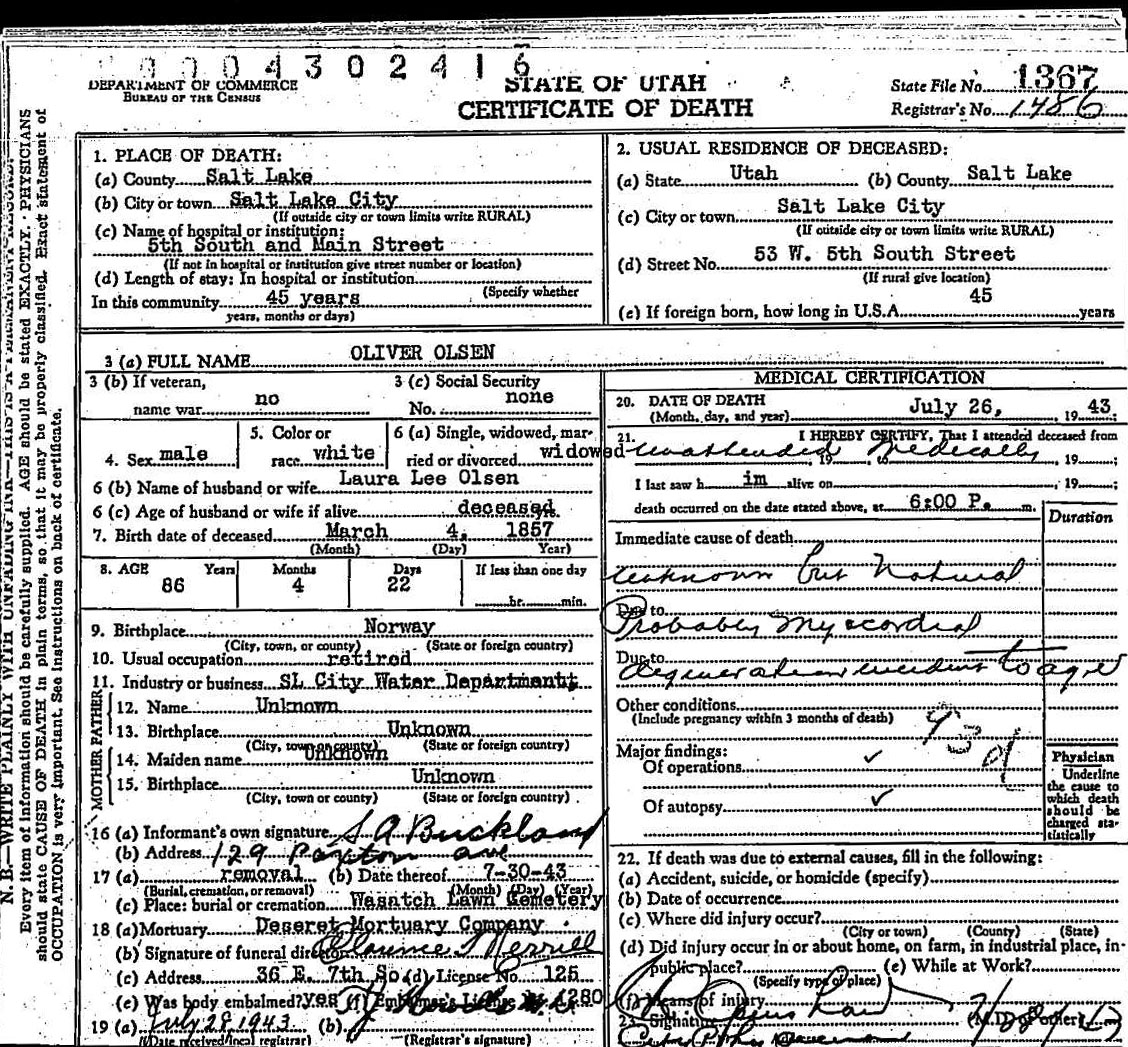 0004302416
DEPARTMENT OF COMMERCE
BUREAU OF THE CENSUS
STATE OF UTAH
CERTIFICATE OF DEATH
State File No. 1367
Registrar's No. 1486
N. B.—WRITE PLAINLY WITH UNFADING INK—THIS IS A PERMANENT RECORD
Every item of information should be carefully supplied. AGE should be stated EXACTLY. PHYSICIANS
should state CAUSE OF DEATH in plain terms, so that it may be properly classified. Exact statement of
OCCUPATION is very important. See instructions on back of certificate.
1. PLACE OF DEATH:
(a) County Salt Lake
(b) City or town Salt Lake City
(If outside city or town limits write RURAL)
(c) Name of hospital or institution:
5th South and Main Street
(If not in hospital or institution give street number or location)
(d) Length of stay: In hospital or institution
(Specify whether
In this community 45 years
years, months or days)
2. USUAL RESIDENCE OF DECEASED:
(a) State Utah (b) County Salt Lake
(c) City or town Salt Lake City
(If outside city or town limits write RURAL)
(d) Street No. 53 W. 5th South Street
(If rural give location)
(e) If foreign born, how long in U.S.A. 45 years
3 (a) FULL NAME OLIVER OLSEN
3 (b) If veteran, name war no
3 (c) Social Security No. none
4. Sex male
5. Color or race white
6 (a) Single, widowed, married or divorced widowed
6 (b) Name of husband or wife Laura Lee Olsen
6 (c) Age of husband or wife if alive deceased yrs.
7. Birth date of deceased March 4, 1857
(Month) (Day) Year)
8. AGE Years Months Days If less than one day
86 4 22 hr. min.
9. Birthplace Norway
(City, town, or county) (State or foreign country)
10. Usual occupation retired
11. Industry or business SL City Water Department
FATHER
12. Name Unknown
13. Birthplace Unknown
(City, town or county) (State or foreign country)
MOTHER
14. Maiden name Unknown
15. Birthplace Unknown
(City, town or county) (State or foreign country)
16 (a) Informant's own signature S A Buckland
(b) Address 129 Paxton ave
17 (a) removal (b) Date thereof 7-30-43
(Burial, cremation, or removal) (Month) (Day) (Year)
(c) Place: burial or cremation Wasatch Lawn Cemetery
18 (a) Mortuary Deseret Mortuary Company
(b) Signature of funeral director Merrill
(c) Address 36 E. 7th So. (d) License No. 125
(e) Was body embalmed? yes (f) Embalmer's License No. 280
19 (a) July 28 1943 (b)
(Date received local registrar) (Registrar's signature)
MEDICAL CERTIFICATION
20. DATE OF DEATH
(Month, day, and year) July 26, 1943
21. I HEREBY CERTIFY, That I attended deceased from
unattended medically 19 ; 19 ;
I last saw h im alive on , 19 ;
death occurred on the date stated above, at 6:00 P. m.
Duration
Immediate cause of death
Unknown but Natural
Due to
Probably Myocardial
Due to
degeneration incident to age
Other conditions
(Include pregnancy within 3 months of death)
93d
Major findings:
Of operations ✓
Of autopsy ✓
Physician
Underline
the cause to
which death
should be
charged sta-
tistically
22. If death was due to external causes, fill in the following:
(a) Accident, suicide, or homicide (specify)
(b) Date of occurrence
(c) Where did injury occur?
(City or town) (County) (State)
(d) Did injury occur in or about home, on farm, in industrial place, in
public place? (e) While at Work?
(Specify type of place)
(f) Means of injury
23. Signature (M.D. or other)